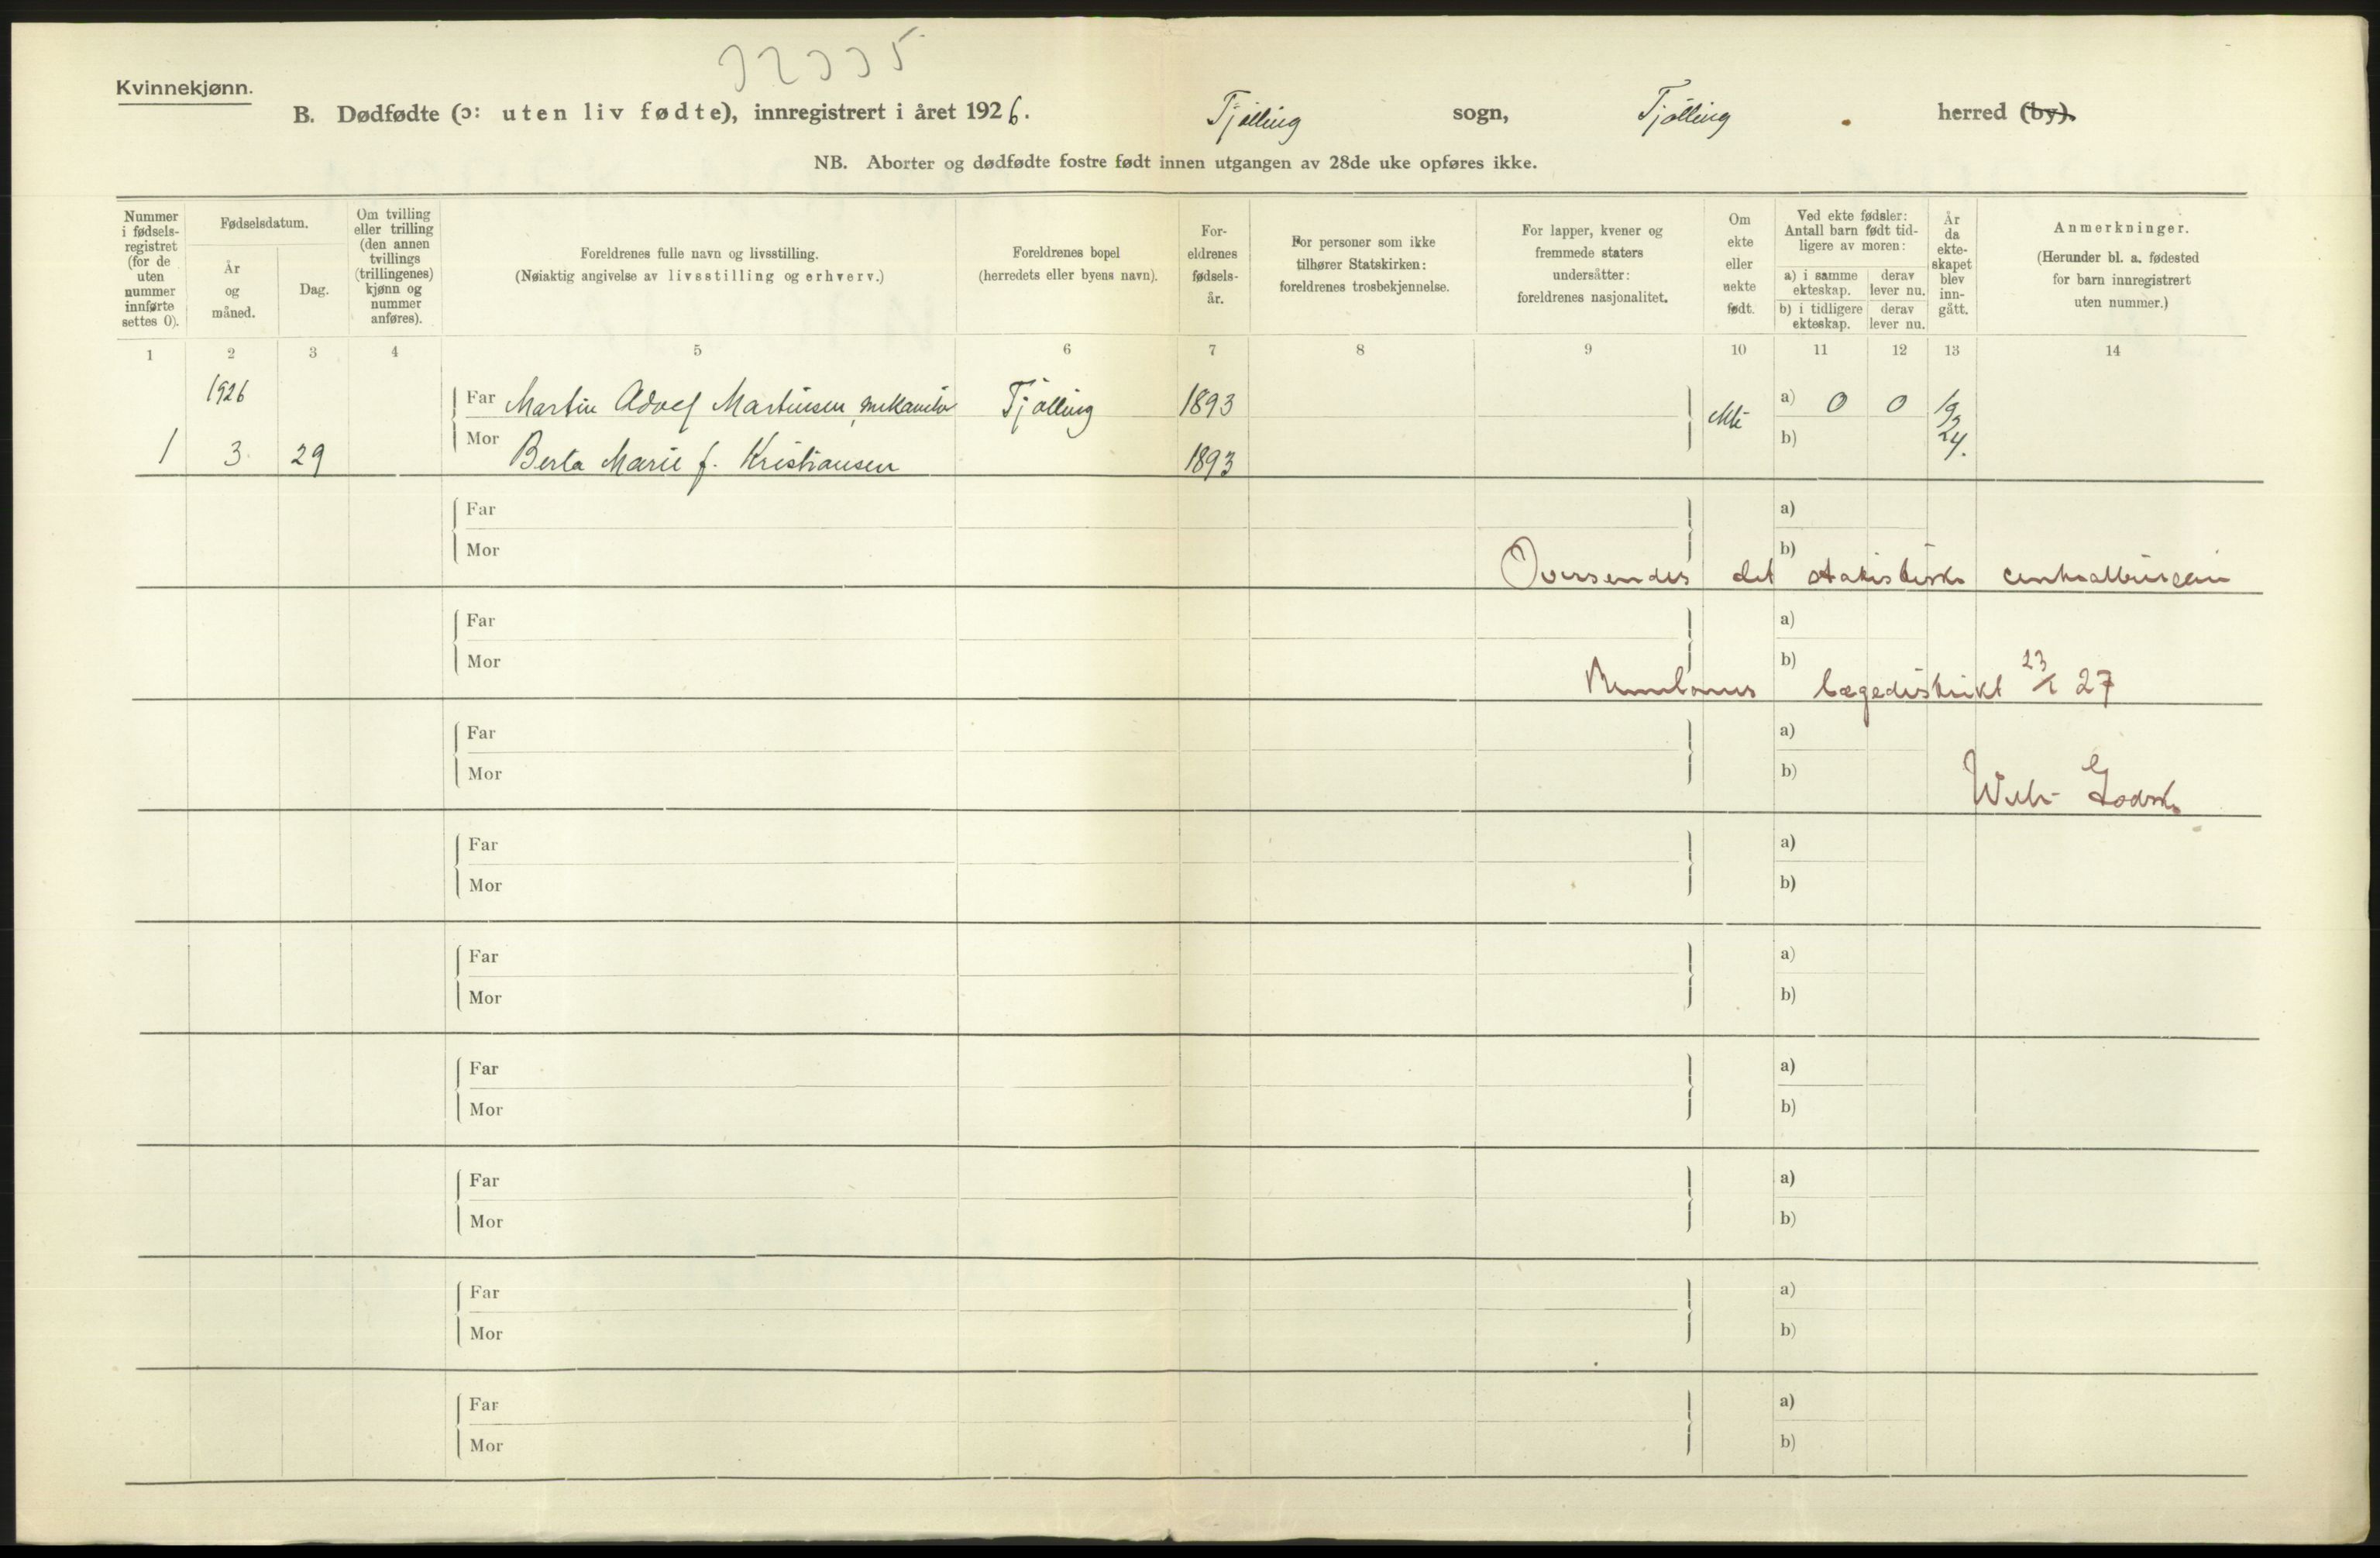 32335
Kvinnekjønn.
B. Dødfødte (ɔ: uten liv fødte), innregistrert i året 1926. Tjølling sogn, Tjølling herred (by).
NB. Aborter og dødfødte fostre født innen utgangen av 28de uke opføres ikke.
Nummer i fødsels-registret (for de uten nummer innførte settes 0).
Fødselsdatum.
År og måned.
Dag.
Om tvilling eller trilling (den annen tvillings (trillingenes) kjønn og nummer anføres).
Foreldrenes fulle navn og livsstilling.
(Nøiaktig angivelse av livsstilling og erhverv.)
Foreldrenes bopel
(herredets eller byens navn).
For-eldrenes fødsels-år.
For personer som ikke tilhører Statskirken: foreldrenes trosbekjennelse.
For lapper, kvener og fremmede staters undersåtter: foreldrenes nasjonalitet.
Om ekte eller uekte født.
Ved ekte fødsler: Antall barn født tid-ligere av moren:
a) i samme ekteskap. derav lever nu.
b) i tidligere ekteskap. derav lever nu.
År da ekte-skapet blev inn-gått.
Anmerkninger.
(Herunder bl. a. fødested for barn innregistrert uten nummer.)
1 2 3 4 5 6 7 8 9 10 11 12 13 14
1926 Far Martin Adolf Martinsen, mekaniker Tjølling 1893 ekte a) 0 0 19
1 3 29 Mor Berta Marie f. Kristiansen 1893 b) 24.
Far a)
Mor b)
Oversendes det statistiske centralbureau
Far a)
Mor b)
lægedistrikt 23/2 27
Far a)
Mor b)
Far a)
Mor b)
Far a)
Mor b)
Far a)
Mor b)
Far a)
Mor b)
Far a)
Mor b)
Far a)
Mor b)